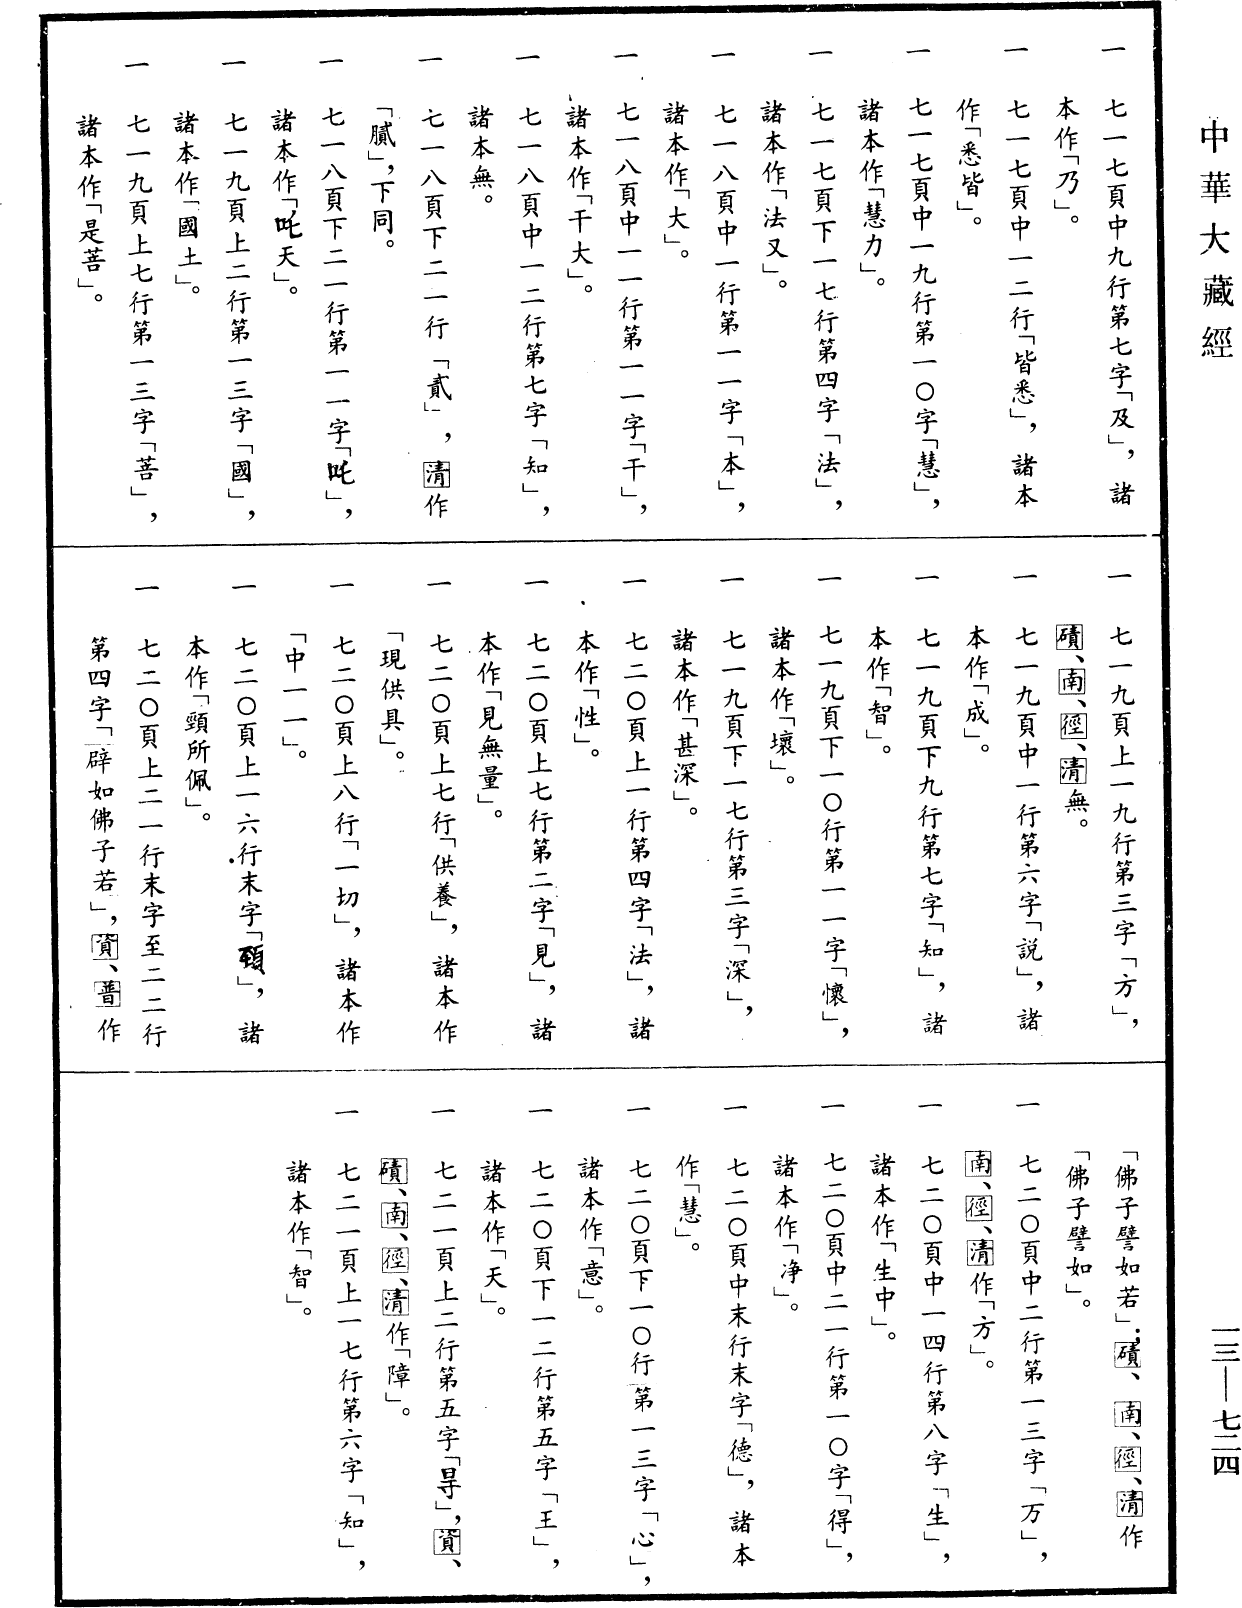 中華大藏經
一 七一七頁中九行第七字「及」，諸
本作「乃」。
一 七一七頁中一二行「皆悉」，諸本
作「悉皆」。
一 七一七頁中一九行第一〇字「慧」，
諸本作「慧力」。
一 七一七頁下一七行第四字「法」，
諸本作「法又」。
一 七一八頁中一行第一一字「本」，
諸本作「大」。
一 七一八頁中一一行第一一字「干」，
諸本作「干大」。
一 七一八頁中一二行第七字「知」，
諸本無。
一 七一八頁下二一行「貳」，清作
「膩」，下同。
一 七一八頁下二一行第一一字「吒」，
諸本作「吒天」。
一 七一九頁上二行第一三字「國」，
諸本作「國土」。
一 七一九頁上七行第一三字「菩」，
諸本作「是菩」。
一 七一九頁上一九行第三字「方」，
磧、南、徑、清無。
一 七一九頁中一行第六字「説」，諸
本作「成」。
一 七一九頁下九行第七字「知」，諸
本作「智」。
一 七一九頁下一〇行第一一字「懷」，
諸本作「壞」。
一 七一九頁下一七行第三字「深」，
諸本作「甚深」。
一 七二〇頁上一行第四字「法」，諸
本作「性」。
一 七二〇頁上七行第二字「見」，諸
本作「見無量」。
一 七二〇頁上七行「供養」，諸本作
「現供具」。
一 七二〇頁上八行「一切」，諸本作
「中一一」。
一 七二〇頁上一六行末字「頸」，諸
本作「頸所佩」。
一 七二〇頁上二一行末字至二二行
第四字「辟如佛子若」，資、普作
「佛子譬如若」；磧、南、徑、清作
「佛子譬如」。
一 七二〇頁中二行第一三字「万」，
南、徑、清作「方」。
一 七二〇頁中一四行第八字「生」，
諸本作「生中」。
一 七二〇頁中二一行第一〇字「得」，
諸本作「净」。
一 七二〇頁中末行末字「德」，諸本
作「慧」。
一 七二〇頁下一〇行第一三字「心」，
諸本作「意」。
一 七二〇頁下一二行第五字「王」，
諸本作「天」。
一 七二一頁上二行第五字「㝵」，資、
磧、南、徑、清作「障」。
一 七二一頁上一七行第六字「知」，
諸本作「智」。
一三—七二四